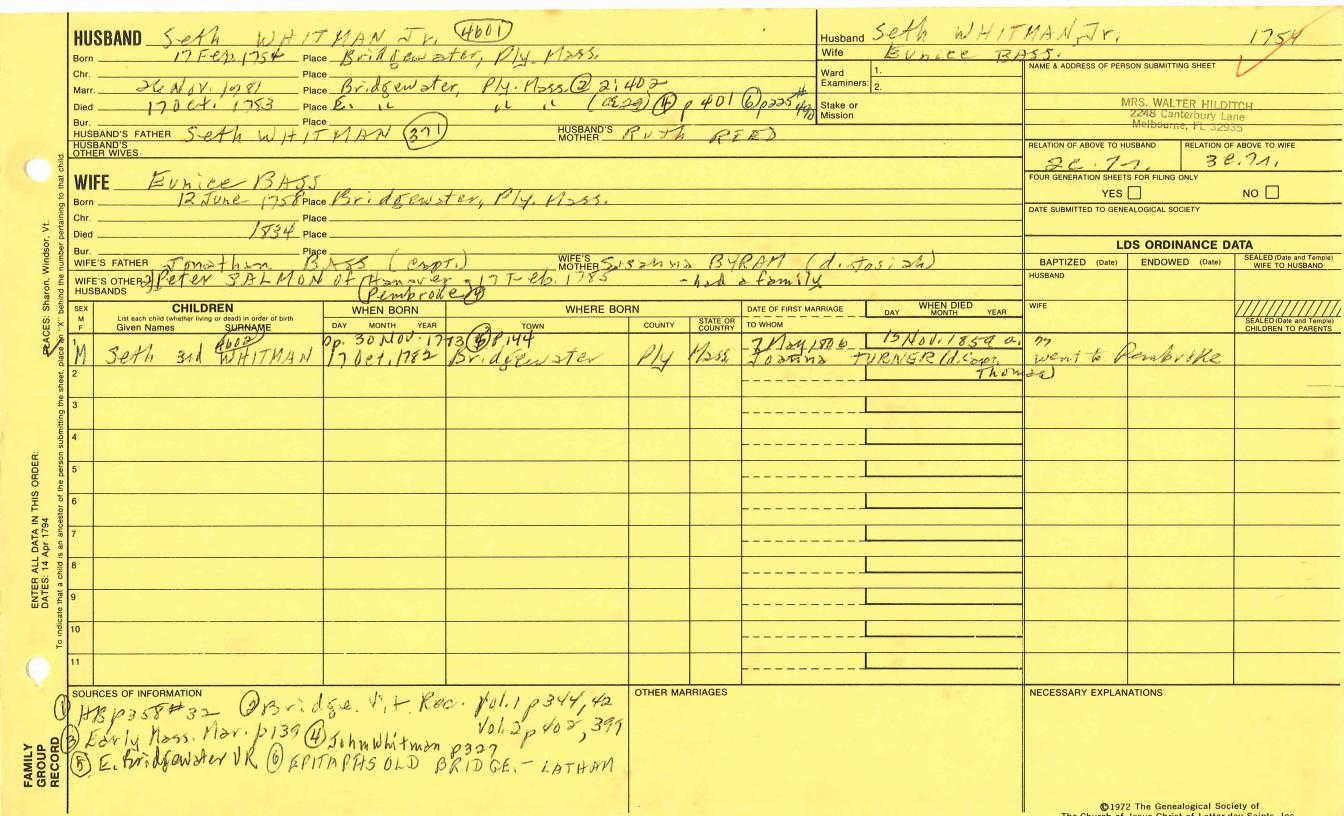 HUSBAND Seth WHITMAN Jr. 4601
Born 17 Feb. 1754 Place Bridgewater, Ply. Mass.
Chr. Place
Marr. 26 Nov. 1781 Place Bridgewater, Ply. Mass. ② 2:402
Died 17 Oct. 1783 Place E. " " " (ae 29) ④ p 401 ⑥ p225 #490
Bur. Place
HUSBAND'S FATHER Seth WHITMAN 371 HUSBAND'S MOTHER Ruth REED
HUSBAND'S OTHER WIVES
WIFE Eunice BASS
Born 12 June 1758 Place Bridgewater, Ply. Mass.
Chr. Place
Died 1834 Place
Bur. Place
WIFE'S FATHER Jonathan BASS (Capt.) WIFE'S MOTHER Susanna BYRAM (d. Josiah)
WIFE'S OTHER HUSBANDS 2) Peter SALMON of Hanover - 17 Feb. 1785 - had a family
(Pembroke) ④
Husband Seth WHITMAN, Jr. 1754
Wife Eunice BASS.
Ward Examiners: 1.
2.
Stake or Mission
NAME & ADDRESS OF PERSON SUBMITTING SHEET
MRS. WALTER HILDITCH
2248 Canterbury Lane
Melbourne, FL 32935
RELATION OF ABOVE TO HUSBAND RELATION OF ABOVE TO WIFE
FOUR GENERATION SHEETS FOR FILING ONLY
YES NO
DATE SUBMITTED TO GENEALOGICAL SOCIETY
LDS ORDINANCE DATA
BAPTIZED (Date) ENDOWED (Date) SEALED (Date and Temple) WIFE TO HUSBAND
HUSBAND
WIFE
SEALED (Date and Temple) CHILDREN TO PARENTS
SEX M F
CHILDREN
List each child (whether living or dead) in order of birth
Given Names SURNAME
WHEN BORN
DAY MONTH YEAR
WHERE BORN
TOWN COUNTY STATE OR COUNTRY
DATE OF FIRST MARRIAGE
TO WHOM
WHEN DIED
DAY MONTH YEAR
1 4602 bp. 30 Nov. 1783 ⑤ p144 7 May 1806 15 Nov. 1859 a. 77
M Seth 3rd WHITMAN 17 Oct. 1782 Bridgewater Ply Mass Joanna TURNER (d. Capt. Thomas) went to Pembroke
2
3
4
5
6
7
8
9
10
11
SOURCES OF INFORMATION
① HB p358 #32 ② Bridge. Vit. Rec. Vol. 1 p344, 42
Vol. 2 p 402, 399
③ Early Mass. Mar. p139 ④ John Whitman p327
⑤ E. Bridgewater VR ⑥ EPITAPHS OLD BRIDGE. - LATHAM
OTHER MARRIAGES
NECESSARY EXPLANATIONS
©1972 The Genealogical Society of
The Church of Jesus Christ of Latter-day Saints, Inc.
PLACES: Sharon, Windsor, Vt.
To indicate that a child is an ancestor of the person submitting the sheet, place an "X" behind the number pertaining to that child.
ENTER ALL DATA IN THIS ORDER:
DATES: 14 Apr 1794
FAMILY
GROUP
RECORD